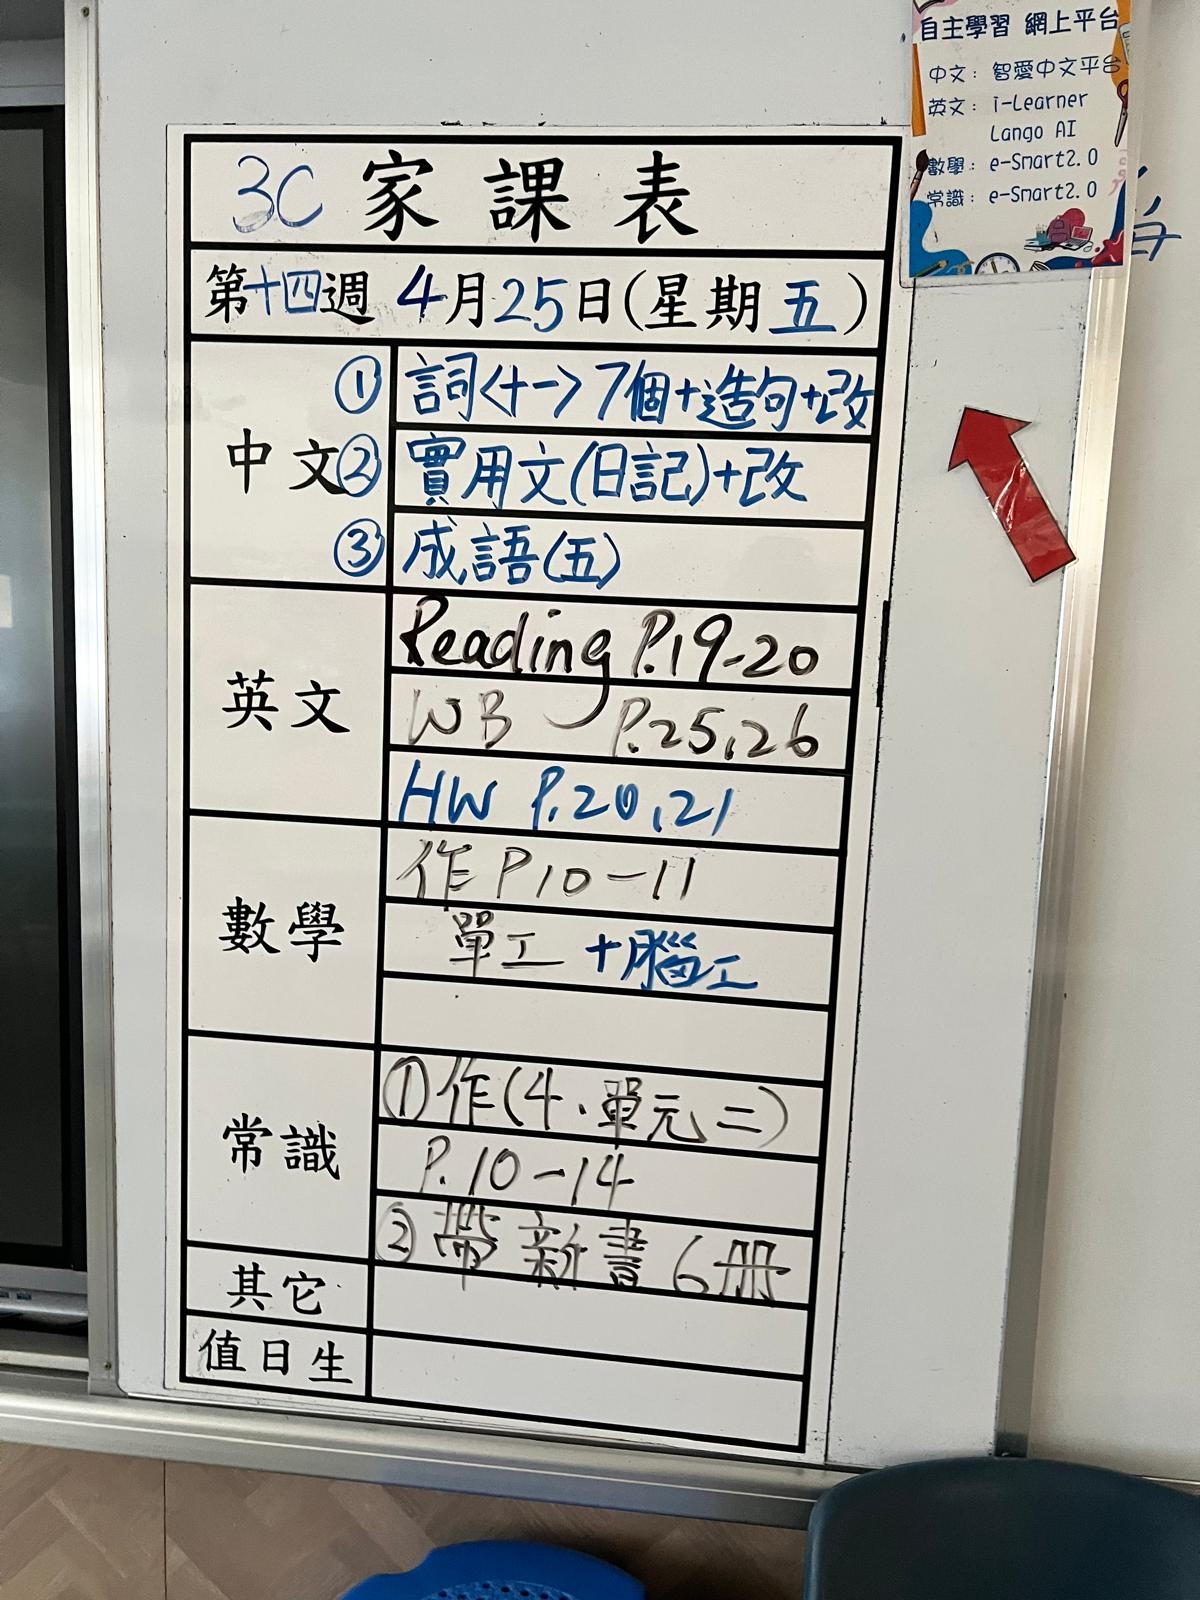 自主學習 網上平台
中文: 智愛中文平台
英文: i-Learner
Lango AI
數學: e-Smart2.0
常識: e-Smart2.0
3C 家課表
第十四週 4月25日(星期五)
中文
① 詞<十一>7個+造句+改
② 實用文(日記)+改
③ 成語(五)
英文
Reading P.19-20
WB P.25,26
HW P.20,21
數學
作 P10-11
單工 +腦工
常識
①作(4.單元二)
P.10-14
②帶新書6冊
其它
值日生